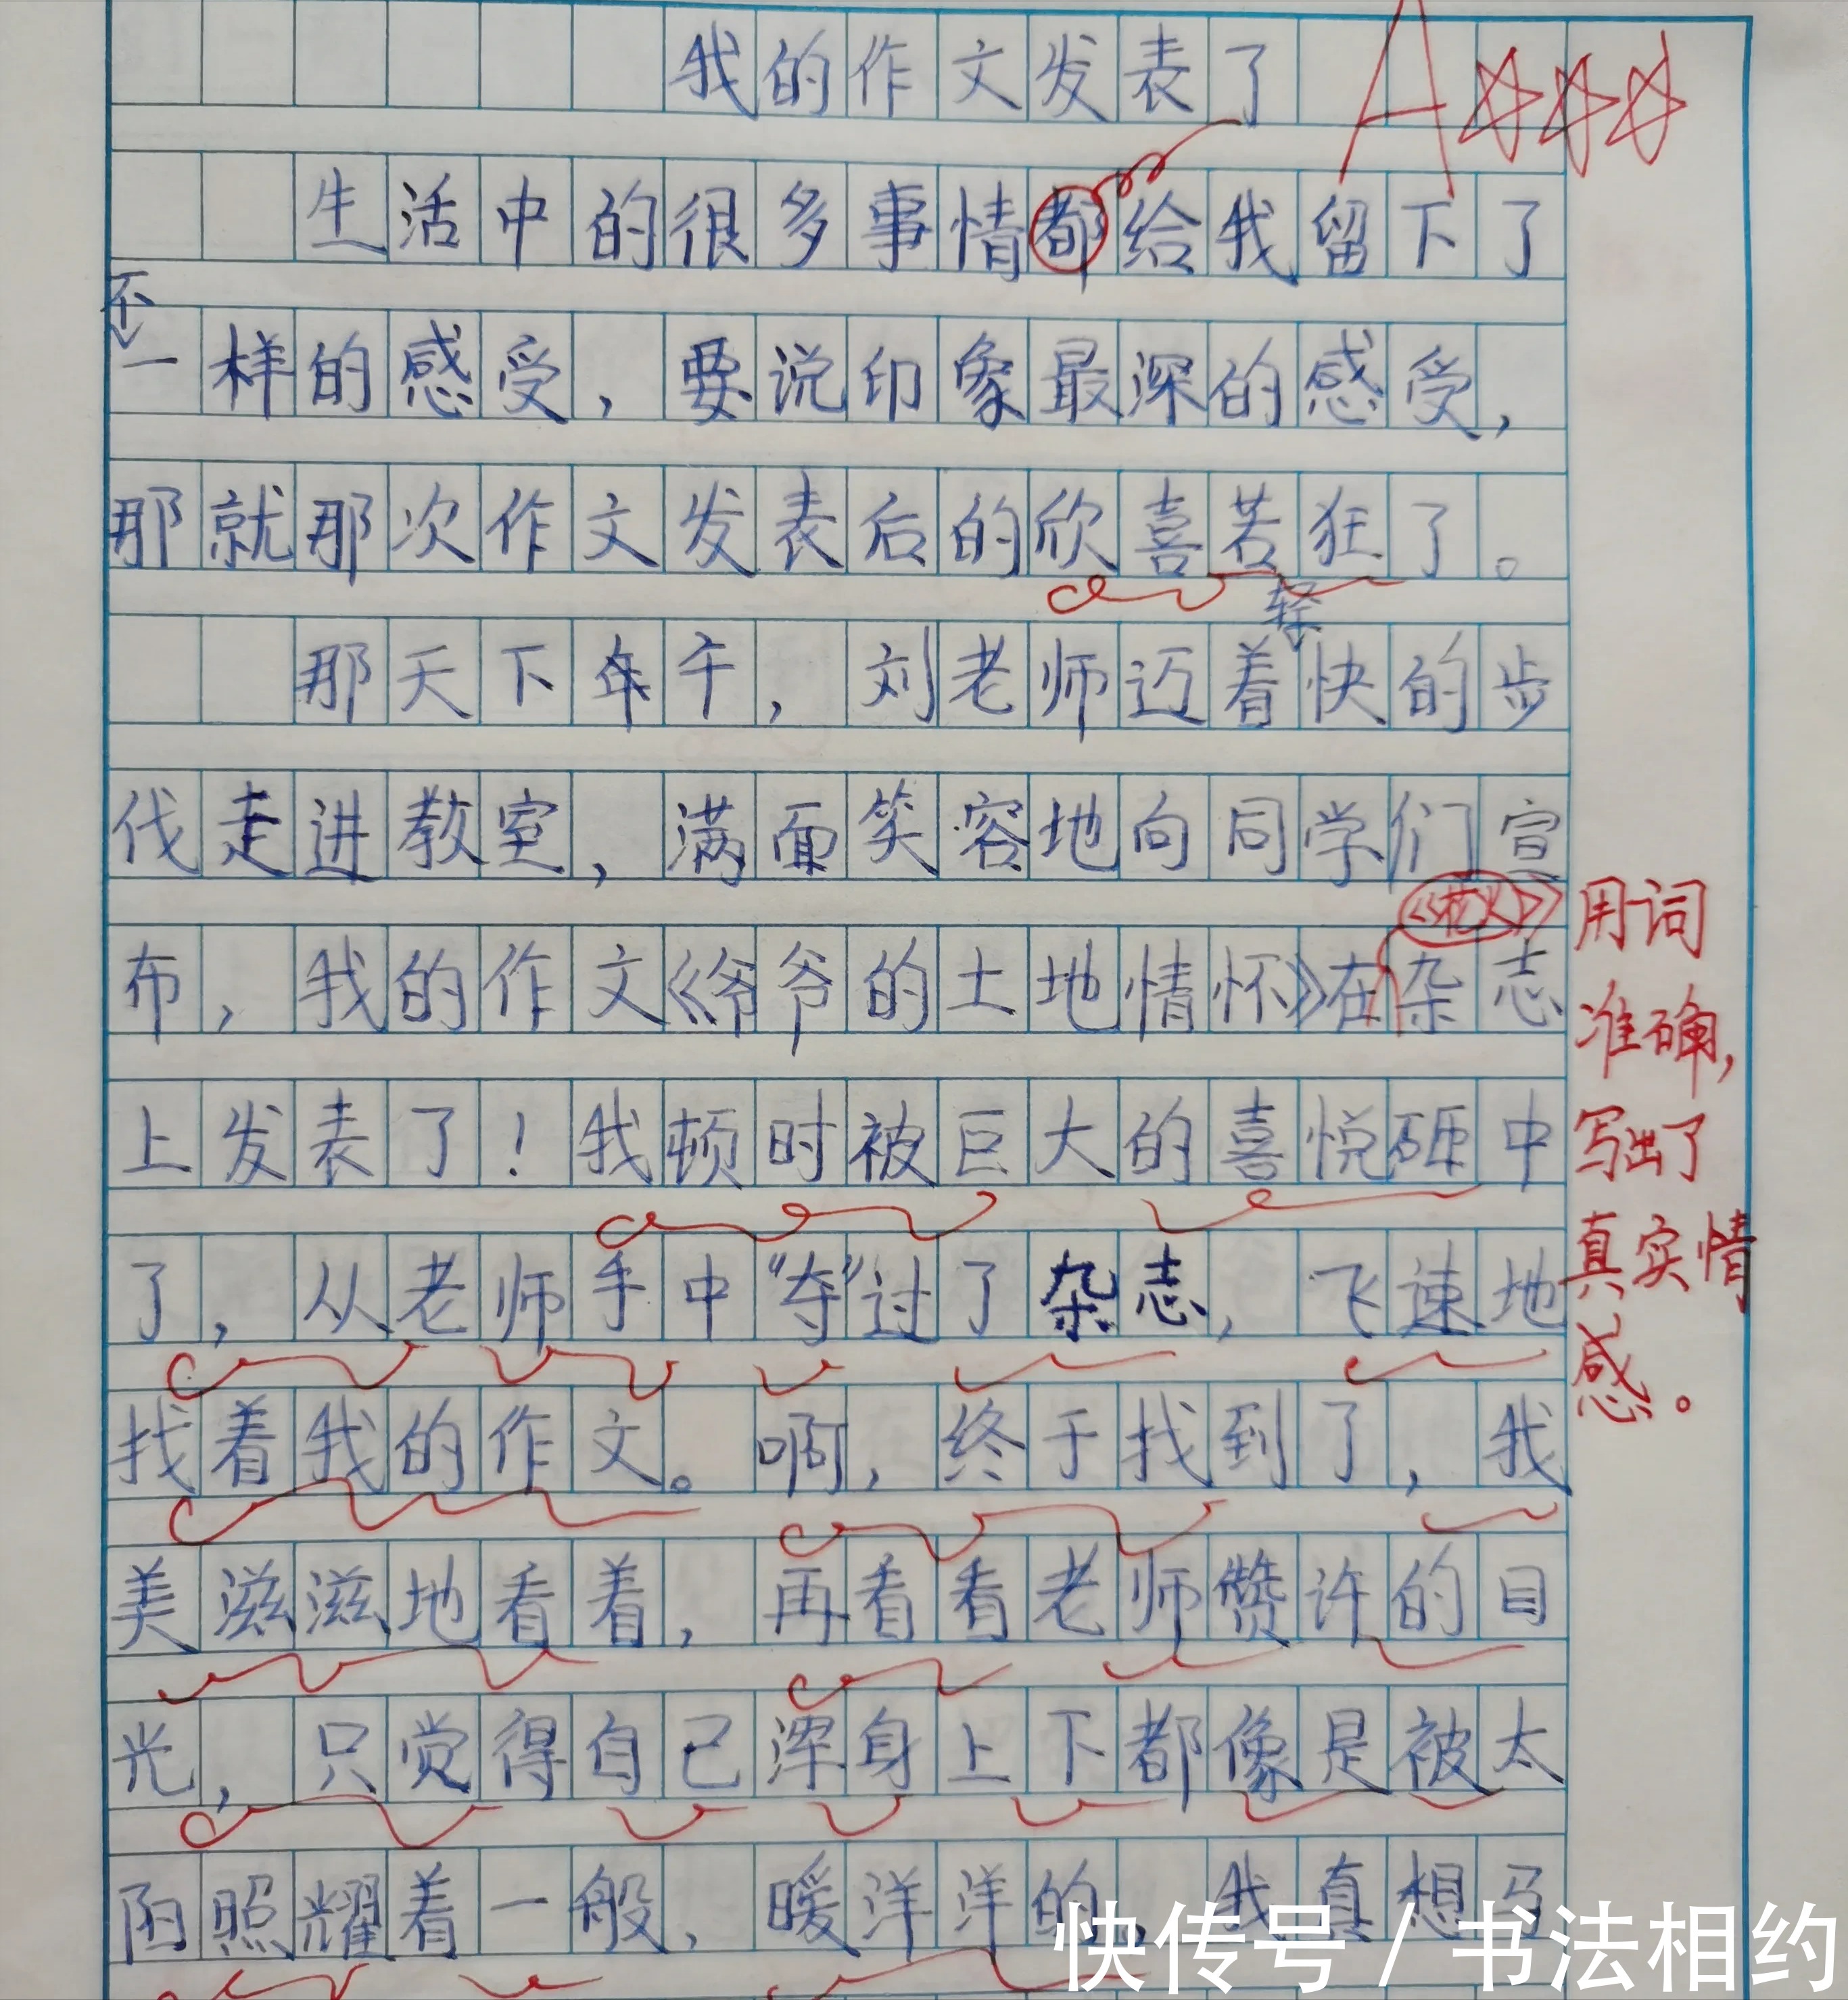 我的作文发表了
A
生活中的很多事情都给我留下了
不
一样的感受，要说印象最深的感受，
那就那次作文发表后的欣喜若狂了。
轻
那天下午，刘老师迈着快的步
伐走进教室，满面笑容地向同学们宣
布，我的作文《爷爷的土地情怀》在杂志
上发表了！我顿时被巨大的喜悦砸中
了，从老师手中“夺”过了杂志，飞速地
找着我的作文。啊，终于找到了，我
美滋滋地看着，再看看老师赞许的目
光，只觉得自己浑身上下都像是被太
阳照耀着一般，暖洋洋的，我真想马
用词
准确，
写出了
真实情
感。
快传号/书法相约